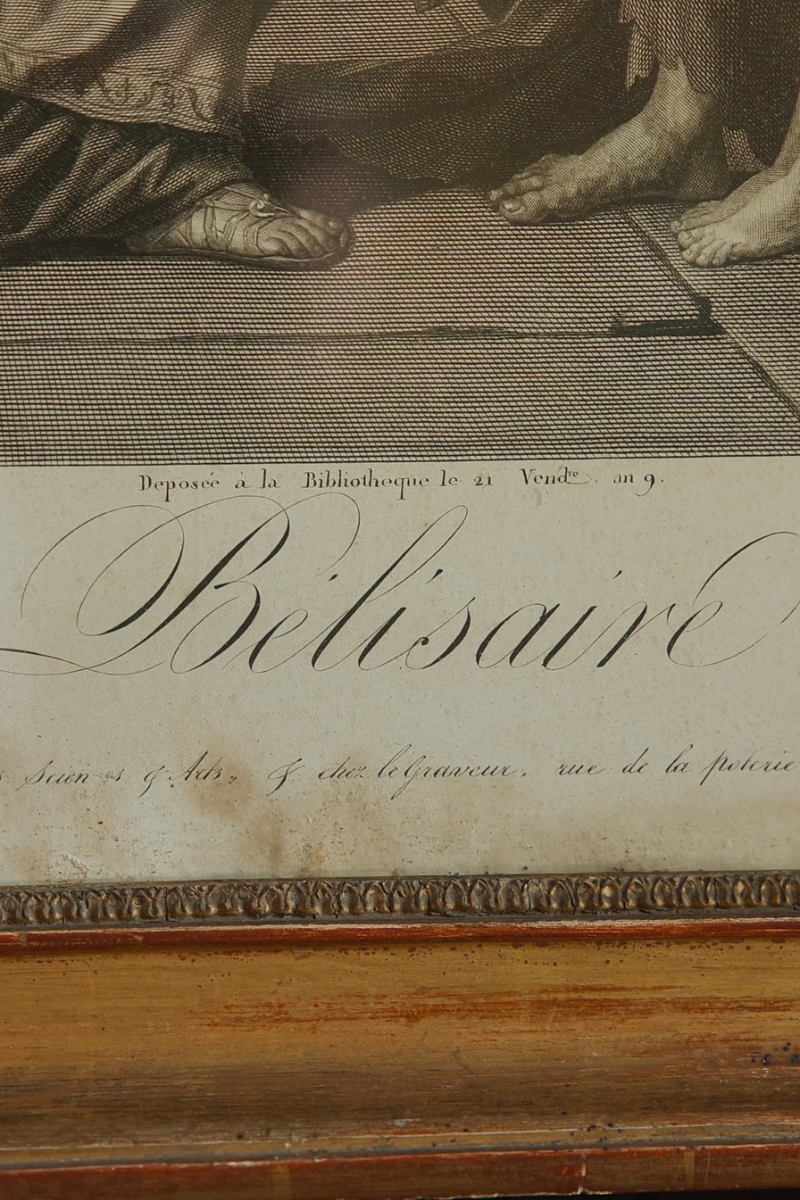 Deposée à la Bibliotheque le 21 Vend.re an 9.
Bélisaire
Sciences & Arts, & chez le Graveur, rue de la poterie